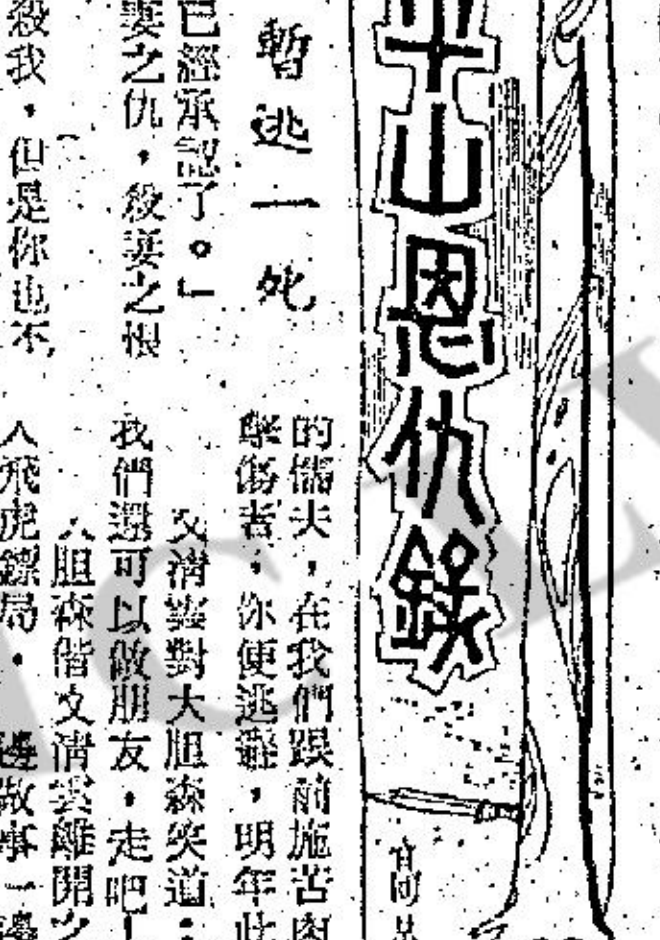 半山恩仇錄
暫逃一死
已經承認了。」
妻之仇，殺妻之恨
殺我，但是你也不
的懦夫，在我們跟前施苦肉
傷者，你便逃避，明年此
文清雲對大胆森笑道：
我們還可以做朋友，走吧！
大胆森偕文清雲離開之
入飛虎鏢局，邊做事一邊